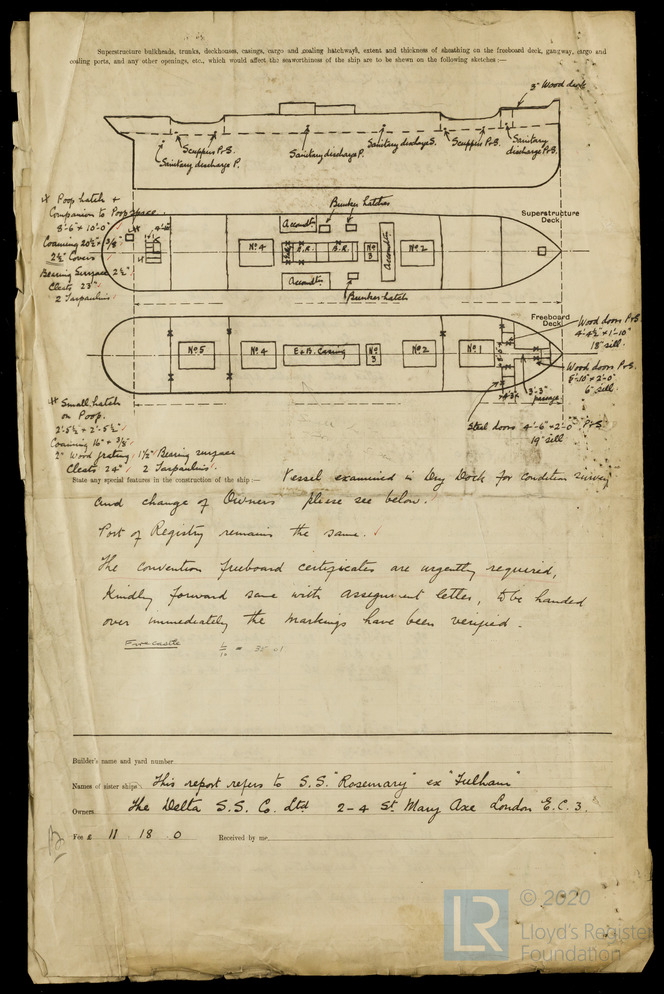 Superstructure bulkheads, trunks, deckhouses, casings, cargo and coaling hatchways, extent and thickness of sheathing on the freeboard deck, gangway, cargo and
coaling ports, and any other openings, etc., which would affect the seaworthiness of the ship are to be shewn on the following sketches :—
3" Wood deck
Scuppers P+S.
Sanitary discharge P.
Sanitary discharge P.
Sanitary discharge S.
Scuppers P+S.
Sanitary
discharge P+S.
Poop hatch +
Companion to Poop space
8'-6" + 10'-0"
Coaming 20½" + 3/8"
2½" Covers
Bearing Surface 2½"
Cleats 23"
2 Tarpaulins
Bunker hatches
Accomdtn
Superstructure
Deck
No 4
B.R.
No 3
Accomdtn
No 2
Accomdtn
Bunker hatch
Freeboard
Deck
Wood doors P+S.
4'-4½" + 1'-10"
18" sill
No 5
No 4
E+B. Casing
No 3
No 2
No 1
Wood doors P+S.
5'-10" + 2'-0"
6" sill
3'-3"
passage
Steel doors 4'-6" + 2'-0" P+S.
19" sill
Small hatch
on Poop.
2'-5½" + 2'-5½"
Coaming 16" + 3/8"
2" Wood grating, 1½" Bearing surface
Cleats 24" 2 Tarpaulins
State any special features in the construction of the ship :— Vessel examined in Dry Dock for condition survey
and change of Owners please see below.
Port of Registry remains the same.
The convention freeboard certificates are urgently required,
Kindly forward same with assignment letter, to be handed
over immediately the markings have been verified.
Forecastle
Builder's name and yard number
Names of sister ships This report refers to S.S. "Rosemary" ex "Fulham"
Owners The Delta S.S. Co. Ltd 2-4 St Mary Axe London E.C.3.
Fee £ 11 . 18 . 0 Received by me
LR
© 2020
Lloyd's Register
Foundation